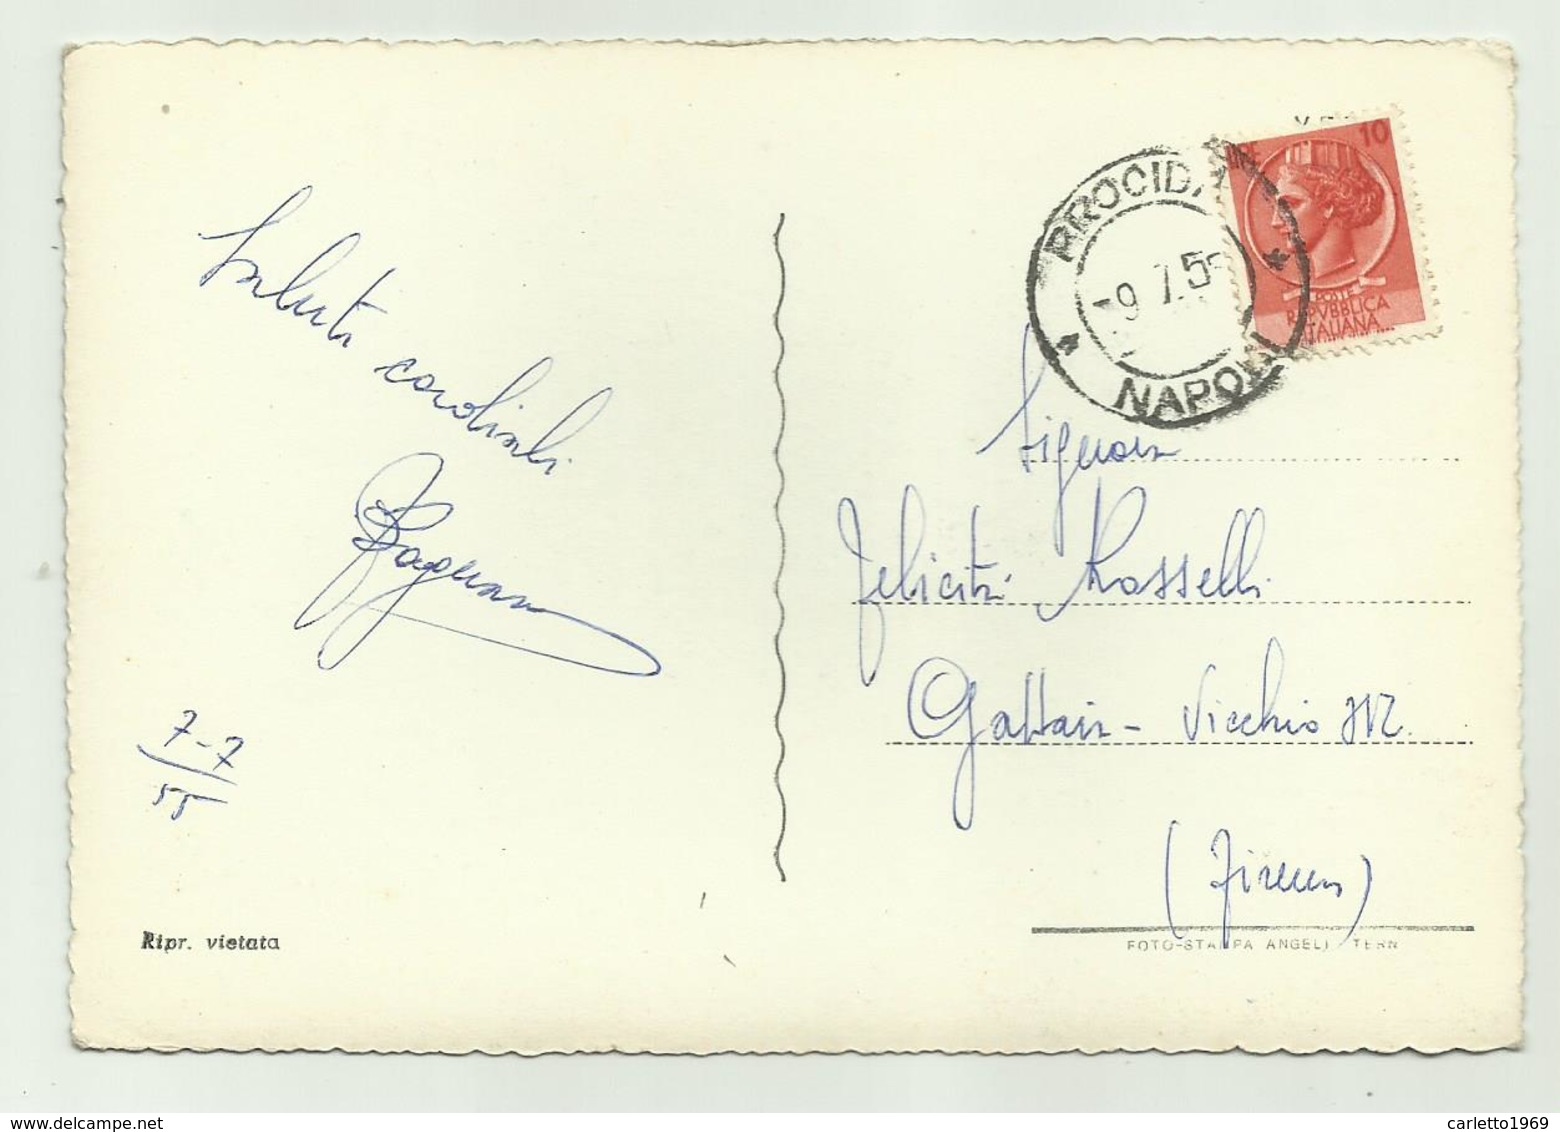 Saluti cordiali
7-7
55
Ripr. vietata
PROCIDA
9.7.5
NAPOLI
LIRE 10
POSTE
REPVBBLICA
ITALIANA
Signora
Felicita Rosselli
Gattaia - Vicchio M.
(Firenze)
FOTO-STAMPA ANGELI TERNI
carletto1969